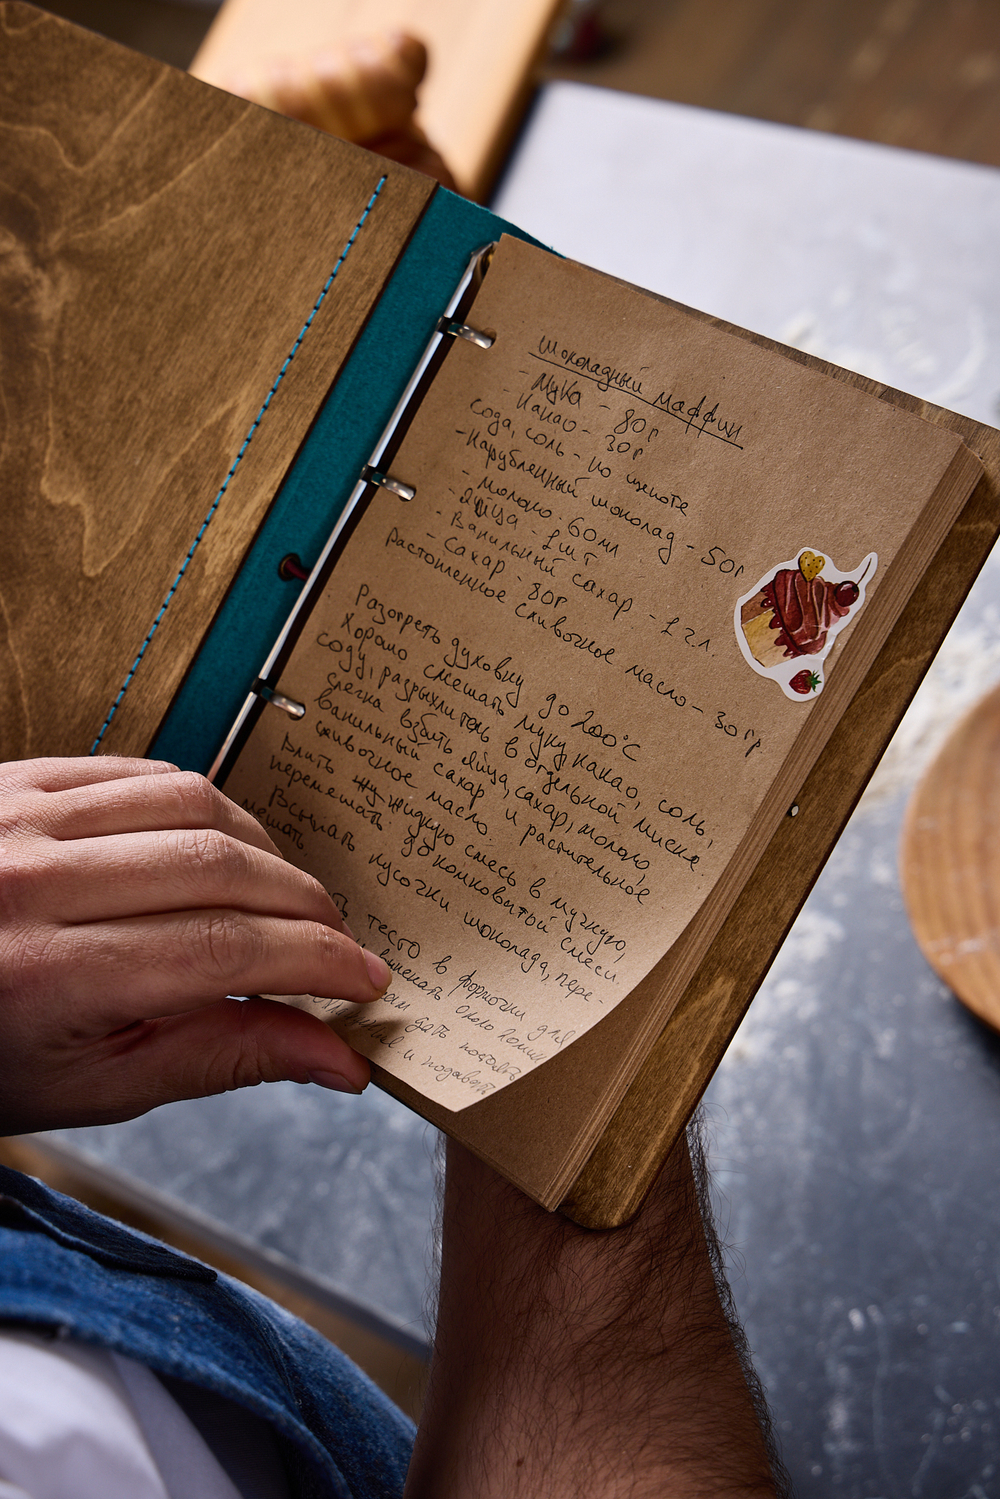 Шоколадный маффин
- Мука - 80г
- Какао - 30г
сода, соль - по щепоте
- Нарубленный шоколад - 50г
- молоко - 60мл
- яйца - 1шт
- Ванильный сахар - 1 г.л.
- Сахар - 80г
Растопленное сливочное масло - 30гр
Разогреть духовку до 200°C
Хорошо смешать муку, какао, соль,
соду, разрыхлитель в отдельной миске.
Слегка взбить яйца, сахар, молоко,
ванильный сахар и растительное
сливочное масло.
Влить жидкую смесь в мучную,
перемешать до комковатой смеси.
Всыпать кусочки шоколада, пере-
мешать.
тесто в формочки для
выпекать около 20мин
дать постоять
и подавать